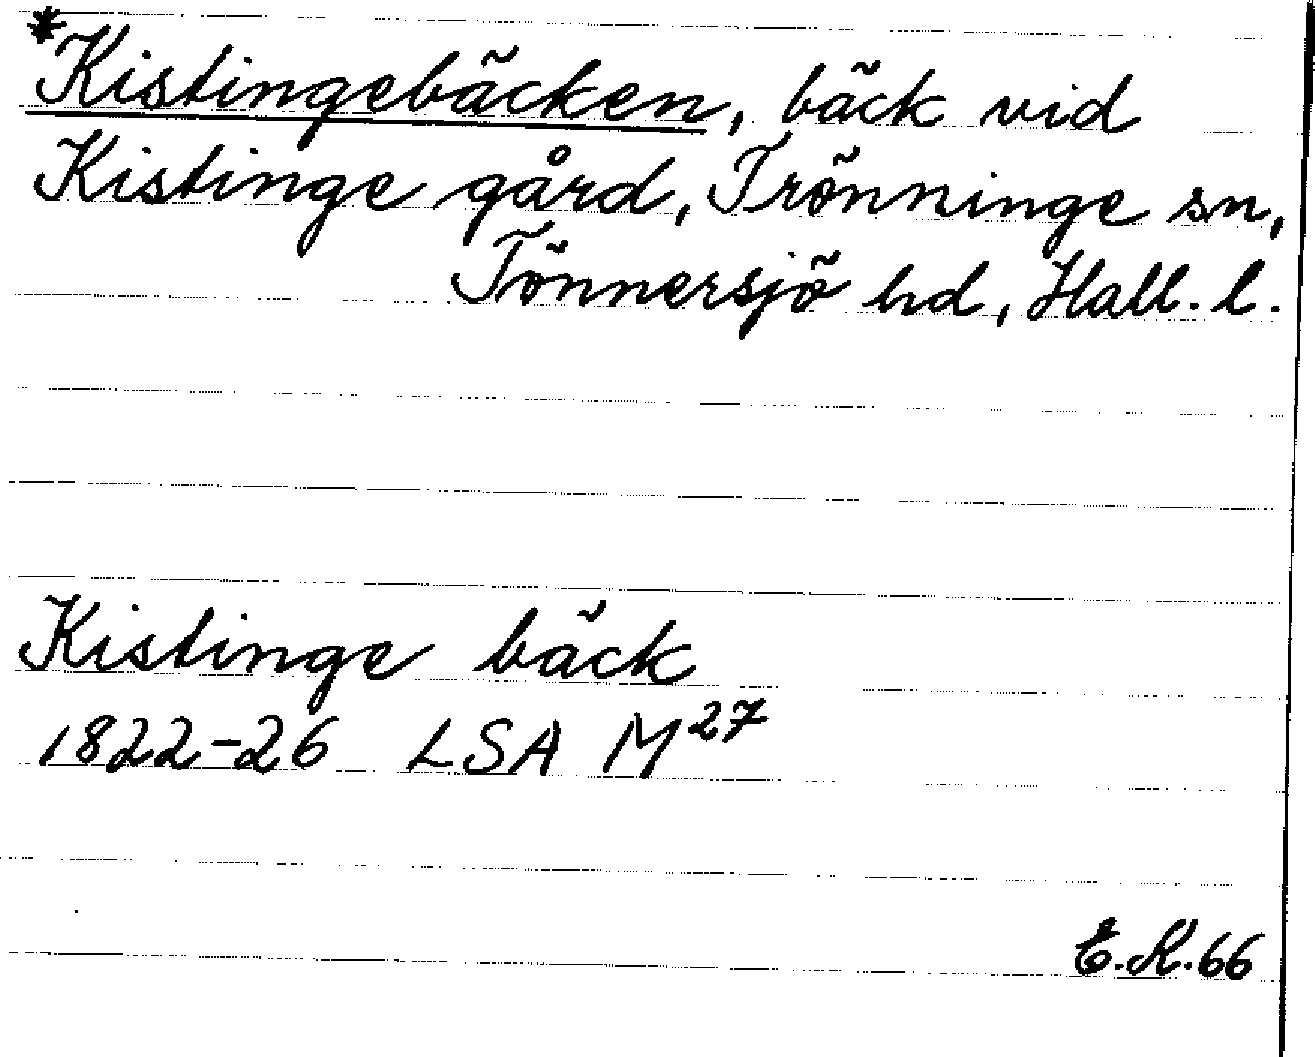 *Kistingebäcken, bäck vid
Kistinge gård, Trönninge sn,
Tönnersjö hd, Hall. l.
Kistinge bäck
1822-26 LSA M²⁷
E.K.66